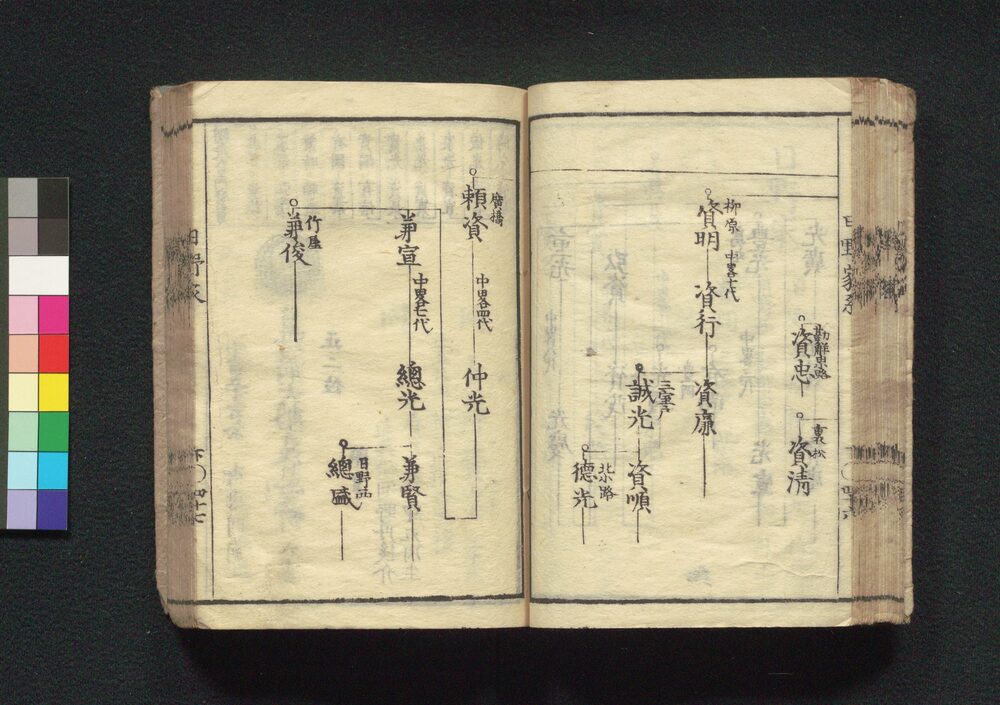 日野家系
勘解由小路
資忠
裏松
資清
柳原
資明
中畧七代
資行
資廉
三室戸
誠光
資順
北小路
德光
下〇四十六
廣橋
頼資
中畧四代
仲光
兼宣
中畧七代
總光
兼賢
日野西
總盛
竹屋
兼俊
下〇四十七